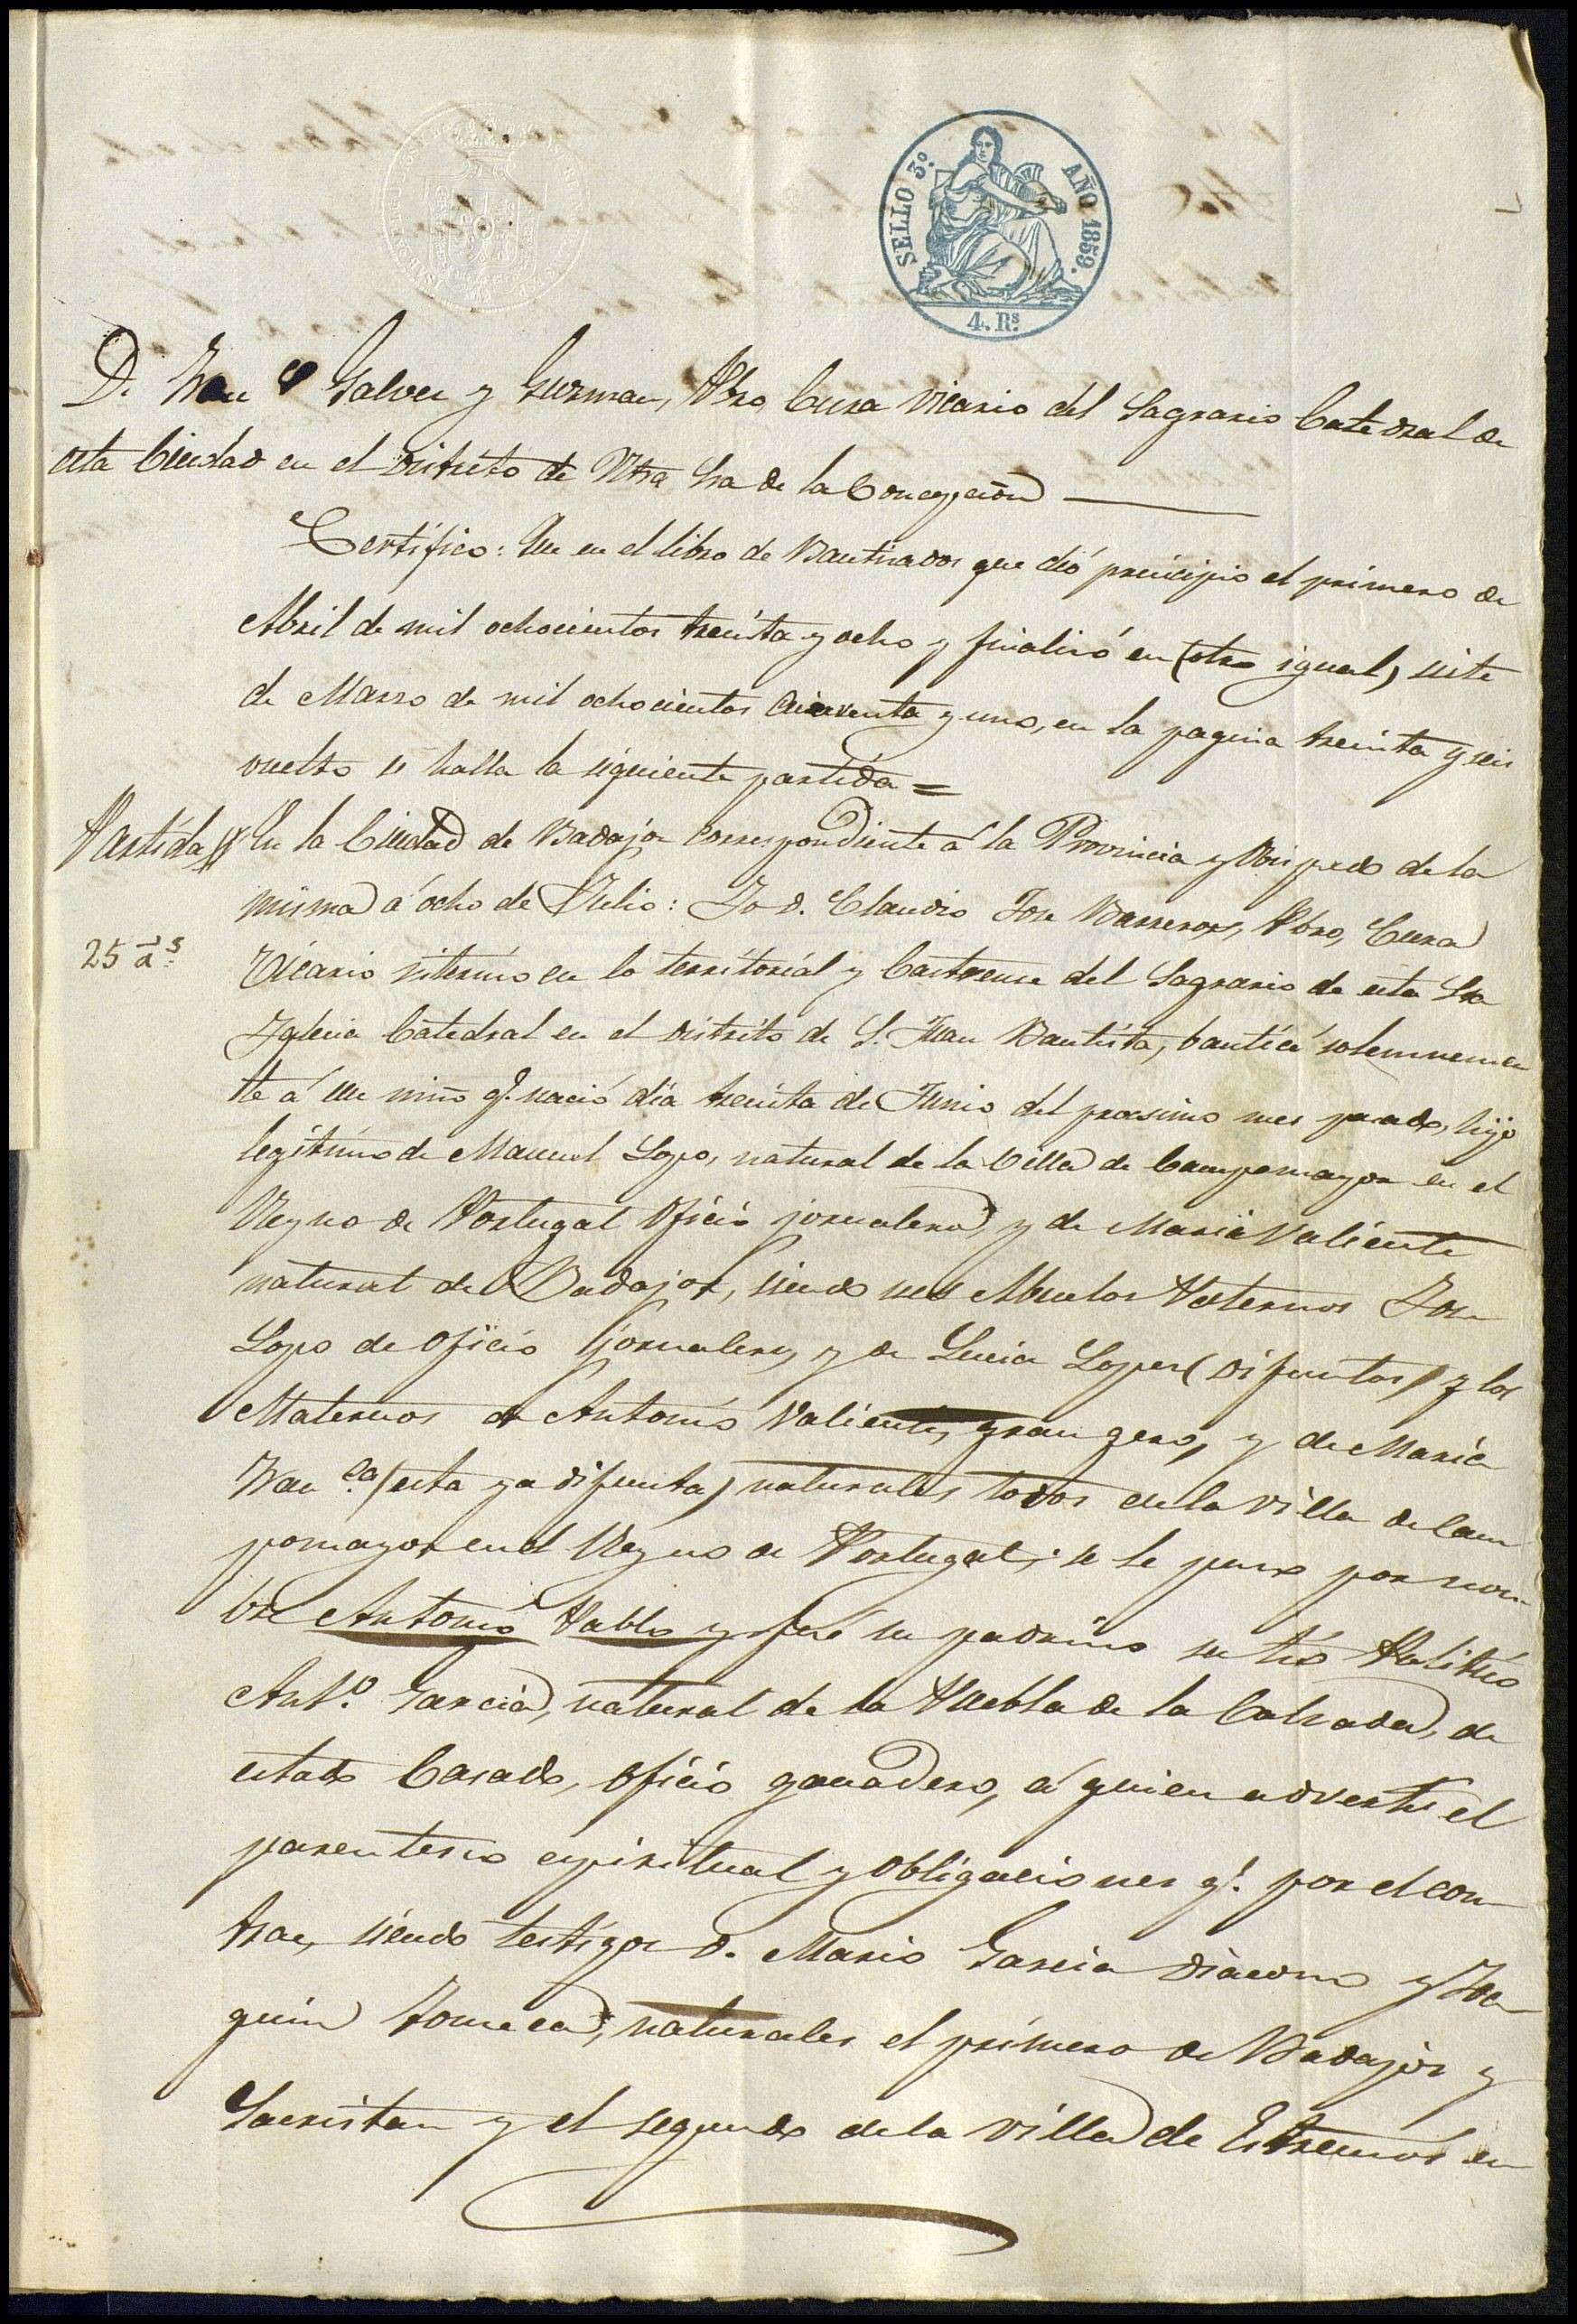 SELLO 3º. AÑO 1859.
4. Rs.
D. Franco Galvez y Guzman, Pbro, Cura Vicario del Sagrario Catedral de
esta Ciudad en el Distrito de Ntra Sra de la Concepcion
Certifico: Que en el libro de Bautizados que dió principio el primero de
Abril de mil ochocientos treinta y ocho y finalizó en (otro igual) siete
de Marzo de mil ochocientos y uno, en la pagina treinta y seis
vuelto se halla la siguiente partida =
Partida En la Ciudad de Badajoz correspondiente á la Provincia y Obispado de la
misma á ocho de Julio: Yo D. Claudio Jose Barreros, Pbro, Cura
25 as.
Vicario interino en lo territorial y Castrense del Sagrario de esta Sta
Iglesia Catedral en el distrito de S. Juan Bautista, bauticé solemnemen
te á un niño q. nació dia treinta de Junio del procsimo mes pasado, hijo
legitimo de Manuel Lopo, natural de la Villa de Campomayor en el
Reyno de Portugal oficio jornalero y de Maria Valiente
natural de Badajoz, siendo sus Abuelos Paternos Jose
Lopo de oficio jornalero, y de Lucia Lopez (difuntos) y los
Maternos de Antonio Valiente, grangero, y de Maria
Franca (esta ya difunta) naturales todos de la villa de Cam
pomayor en el Reyno de Portugal; se le puso por nom
bre Antonio Pablo y fué su padrino su tio Politico
Anto. Garcia, natural de la Puebla de la Calzada, de
estado Casado, oficio ganadero, á quien adverti el
parentesco espiritual y obligaciones q. por el con
trae, siendo testigos D. Mario Garcia Diacono y Joa
quin Fonseca, naturales el primero de Badajoz y
Sacristan y el segundo de la villa de Estremós en